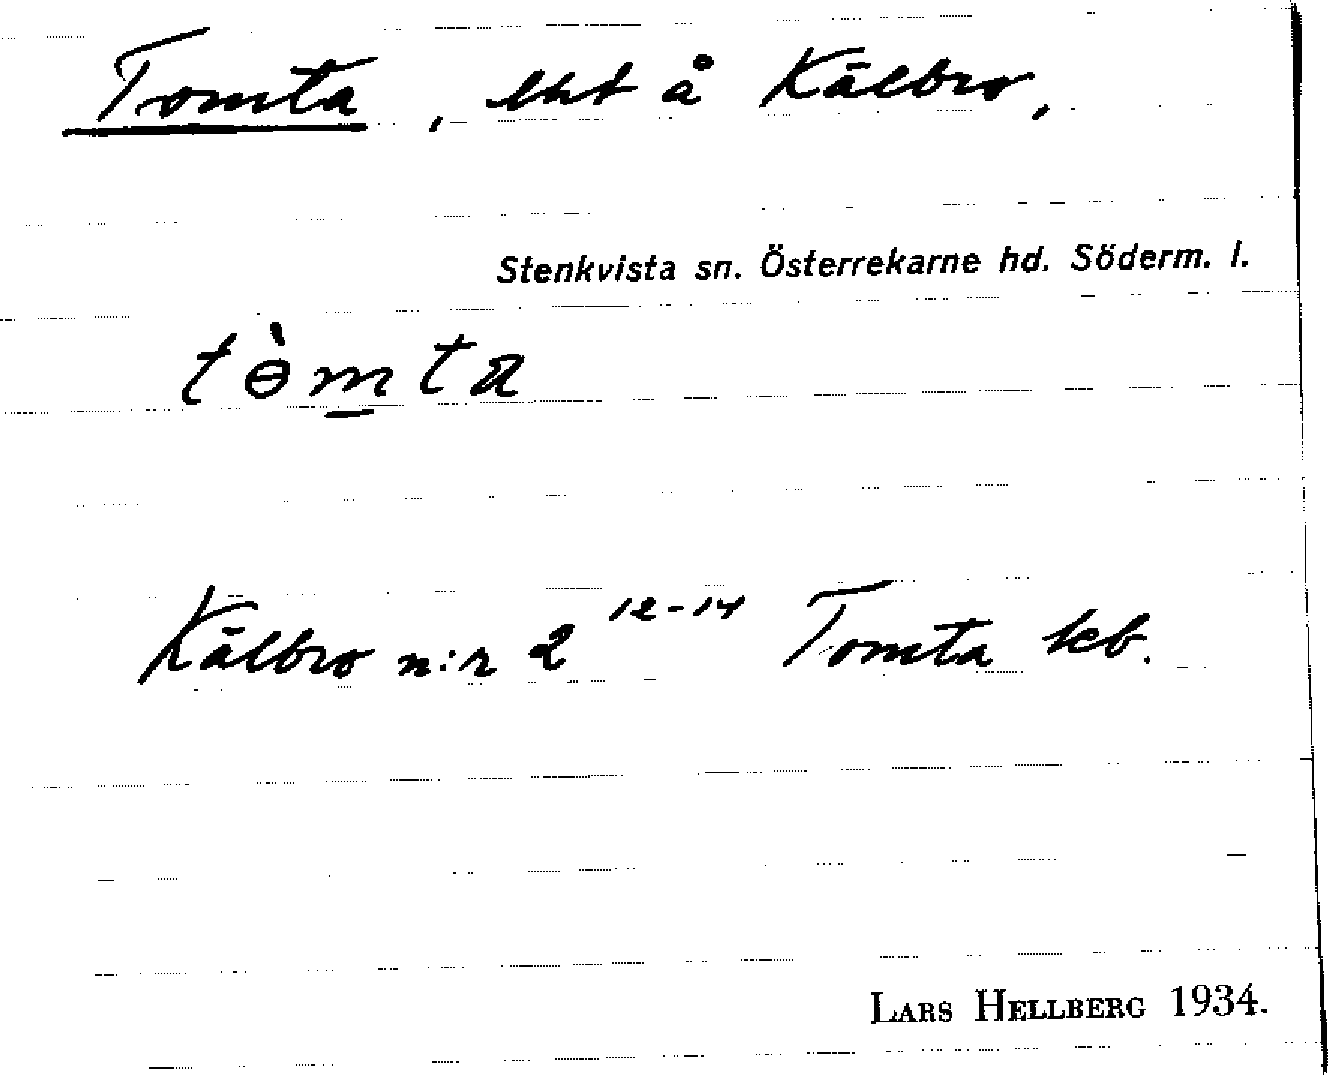 Tomta, lht å Kälbro,
Stenkvista sn. Österrekarne hd. Söderm. l.
tɵ̀m̲ta
Kälbro n:r 2 12-14 Tomta leb.
LARS HELLBERG 1934.